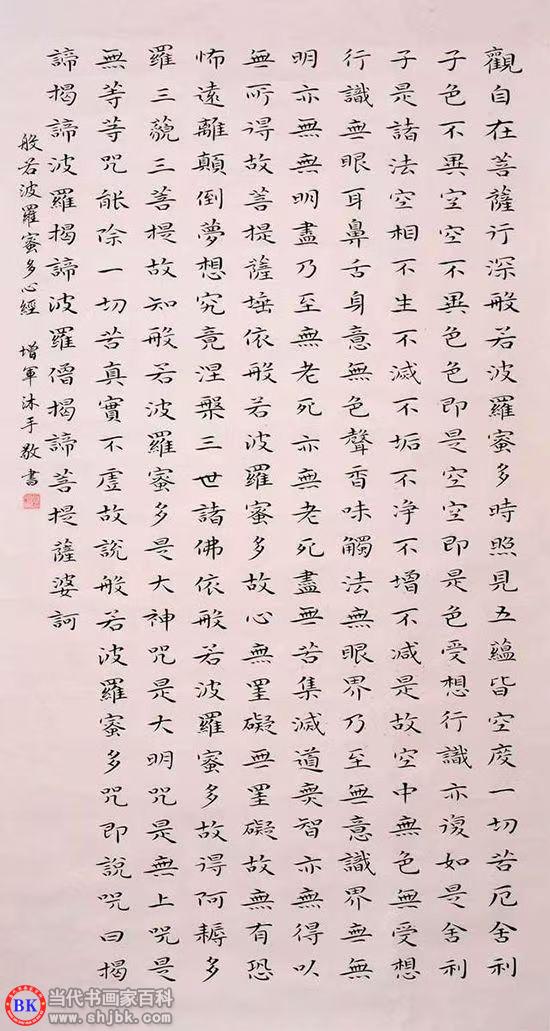 觀自在菩薩行深般若波羅蜜多時照見五蘊皆空度一切苦厄舍利
子色不異空空不異色色即是空空即是色受想行識亦復如是舍利
子是諸法空相不生不滅不垢不净不增不减是故空中無色無受想
行識無眼耳鼻舌身意無色聲香味觸法無眼界乃至無意識界無無
明亦無無明盡乃至無老死亦無老死盡無苦集滅道無智亦無得以
無所得故菩提薩埵依般若波羅蜜多故心無罣礙無罣礙故無有恐
怖遠離顛倒夢想究竟涅槃三世諸佛依般若波羅蜜多故得阿耨多
羅三藐三菩提故知般若波羅蜜多是大神咒是大明咒是無上咒是
無等等咒能除一切苦真實不虛故說般若波羅蜜多咒即說咒曰揭
諦揭諦波羅揭諦波羅僧揭諦菩提薩婆訶
般若波羅蜜多心經 增軍沐手敬書
BK
当代书画家百科
www.shjbk.com